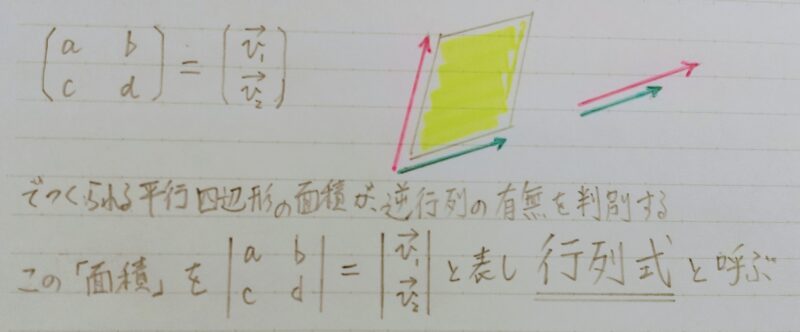 (a b
c d) = (v₁→
v₂→)
でつくられる平行四辺形の面積が、逆行列の有無を判別する
この「面積」を |a b
c d| = |v₁→
v₂→| と表し 行列式 と呼ぶ